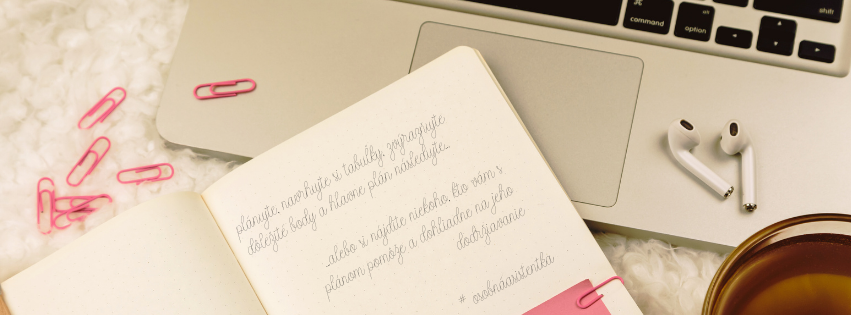 command
option
alt
shift
plánujte, navrhujte si tabuľky, zvýrazňujte
dôležité body a hlavne plán následujte...
...alebo si nájdite niekoho, kto vám s
plánom pomôže a dohliadne na jeho
dodržiavanie
# osobnáasistentka